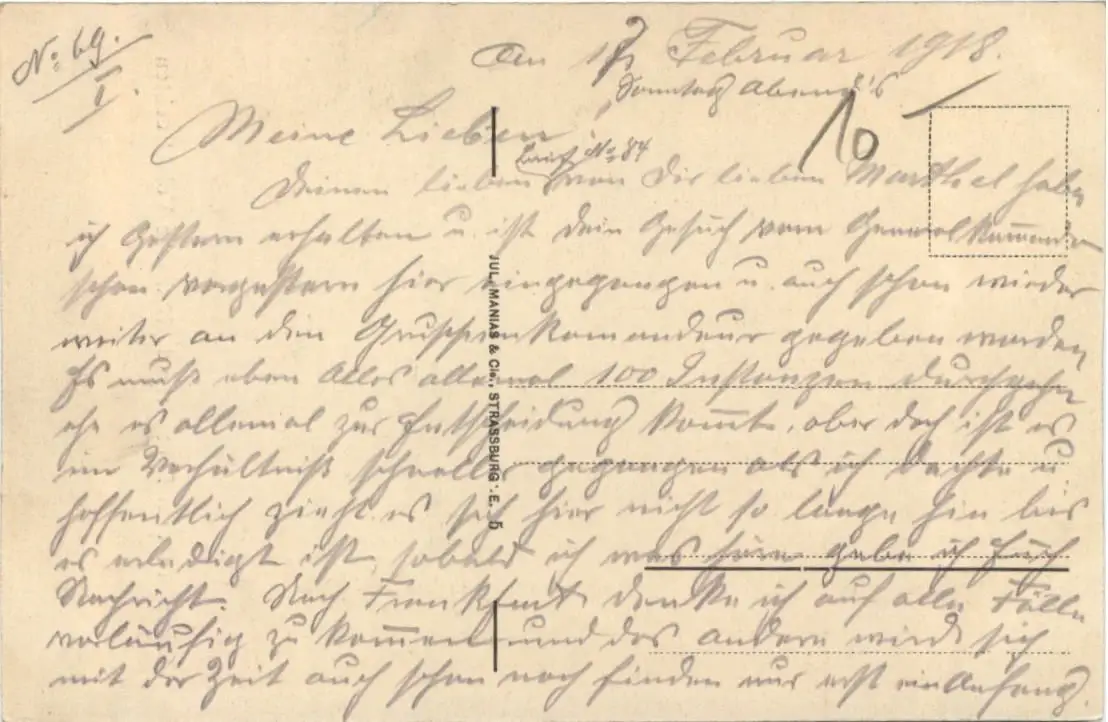 No 69.
I.
Den 17 Februar 1918.
Sonntag Abend 8'
10
Meine Lieben
Brief No 84
Deinen lieben von Dir lieben Marthel habe
ich Gestern erhalten u. ist dein Gesuch vom General Kommando
schon vorgestern hier eingegangen u. auch schon wieder
weiter an den Gruppenkomandeur gegeben worden
Es muß eben Alles allemal 100 Instanzen durchgehn
ehe es allemal zur Entscheidung kommt, aber doch ist es
im Verhältniß schneller gegangen als ich dachte u
hoffentlich zieht es sich hier nicht so lange hin bis
es erledigt ist, sobald ich was höre gebe ich Euch
Nachricht. Nach Frankfurt denke ich auf alle Fälle
vorläufig zu kommen und das andere wird sich
mit der Zeit auch schon noch finden nur erst ein Anfang.
JUL. MANIAS & Cie., STRASSBURG i. E. 5